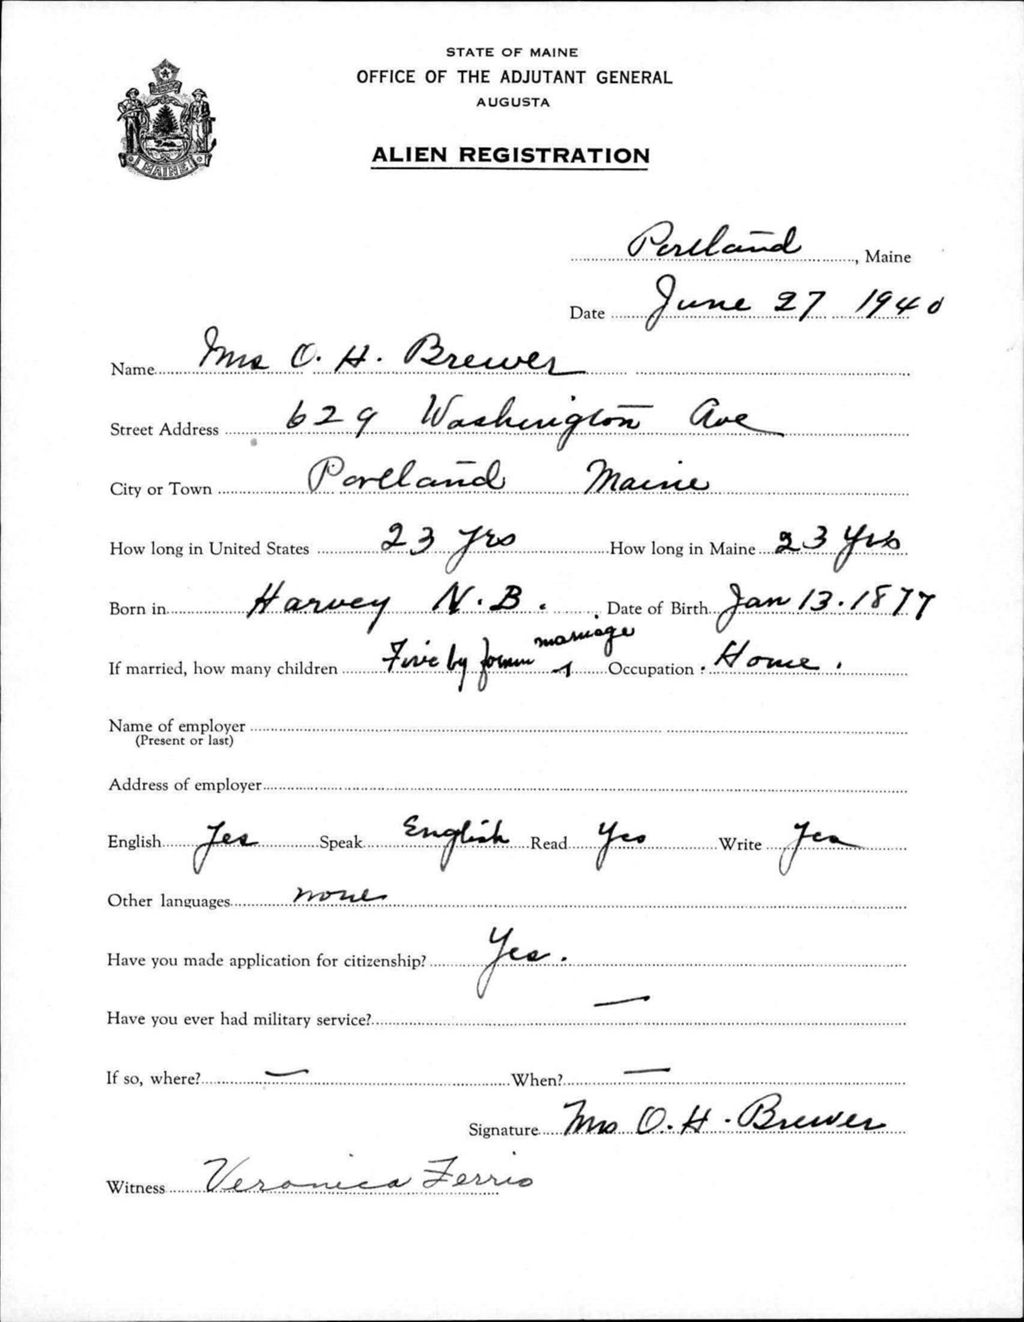 STATE OF MAINE
OFFICE OF THE ADJUTANT GENERAL
AUGUSTA
MAINE
ALIEN REGISTRATION
Portland, Maine
Date June 27 1940
Name Mrs O. H. Brewer
Street Address 629 Washington Ave
City or Town Portland Maine
How long in United States 23 yrs How long in Maine 23 Yrs
Born in Harvey N.B. Date of Birth Jan 13. 1877
If married, how many children Five by former marriage Occupation Home.
Name of employer
(Present or last)
Address of employer
English Yes Speak English Read Yes Write Yes
Other languages none
Have you made application for citizenship? Yes.
Have you ever had military service? —
If so, where? — When? —
Signature Mrs O. H. Brewer
Witness Veronica Ferrio